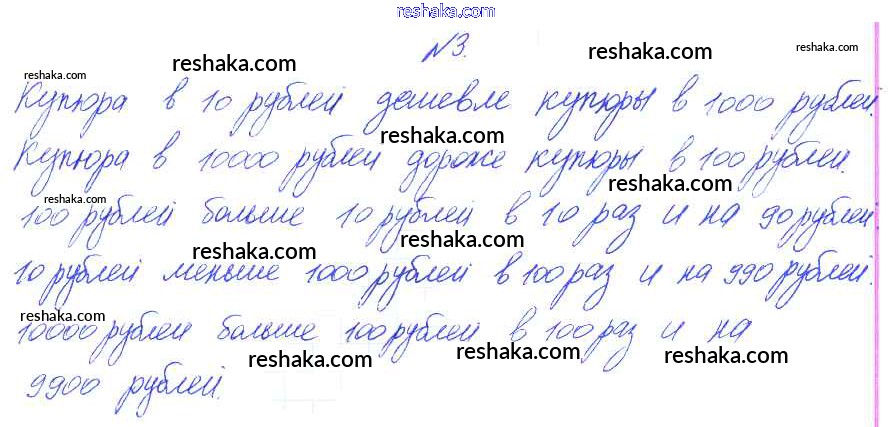 reshaka.com
№3.
reshaka.com reshaka.com reshaka.com reshaka.com
Купюра в 10 рублей дешевле купюры в 1000 рублей.
reshaka.com
Купюра в 10000 рублей дороже купюры в 100 рублей.
reshaka.com reshaka.com
100 рублей больше 10 рублей в 10 раз и на 90 рублей
reshaka.com reshaka.com
10 рублей меньше 1000 рублей в 100 раз и на 990 рублей.
reshaka.com
10000 рублей больше 100 рублей в 100 раз и на
reshaka.com reshaka.com reshaka.com
9900 рублей.